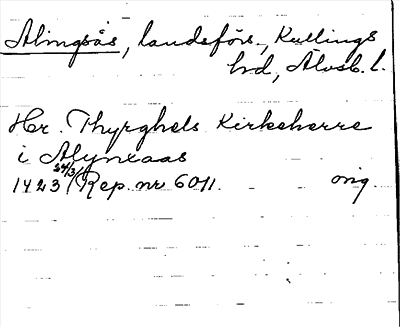 Alingsås, landsförs., Kullings
hd, Älvsb. l.
Hr. Thyrghels Kirkeherre
i Alynxaas
1423 24/3 / Rep. nr 6011. orig.